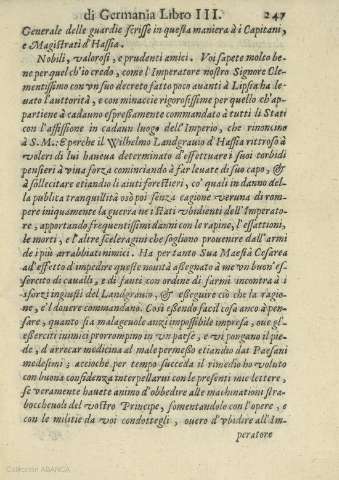 di Germania Libro III. 247
Generale delle guardie scrisse in questa maniera à i Capitani,
e Magistrati d'Hassia.
Nobili, valorosi, e prudenti amici. Voi sapete molto be-
ne per quel ch'io credo, come l'Imperatore nostro Signore Cle-
mentissimo con vn suo decreto fatto poco auanti à Lipsia ha le-
uato l'autorità, e con minaccie rigorosissime per quello ch'ap-
partiene à cadauno espressamente commandato à tutti li Stati
con l'affissione in cadaun luogo dell'Imperio, che rinoncino
à S.M.; E perche il VVilhelmo Landgrauio d'Hassia rittroso à
voleri di lui haueua determinato d'effettuare i suoi torbidi
pensieri à viua forza cominciando à far leuate di suo capo, &
à sollecitare etiandio li aiuti forestieri, co' quali in danno del-
la publica tranquillità osò poi senza cagione veruna di rom-
pere iniquamente la guerra ne i Stati vbidienti dell'Imperato-
re, apportando frequentissimi danni con le rapine, l'essattioni,
le morti, e l'altre sceleragini che sogliono prouenire dall'armi
de i più arrabbiati nimici. Ha pertanto Sua Maestà Cesarea
ad effetto d'impedire queste nouità assegnato à me vn buon' es-
sercito di caualli, e di fanti con ordine di farmi incontra à i
sforzi ingiusti del Landgrauio, & esseguire ciò che la ragio-
ne, e'l douere commandano. Così essendo facil cosa anco à pen-
sare, quanto sia malageuole anzi impossibile impresa, oue gl'
esserciti inimici prorrompino in vn paese, e vi pongano il pie-
de, d'arrecar medicina al male permesso etiandio dai Paesani
medesimi; acciochè per tempo succeda il rimedio hò voluto
con buona confidenza interpellarui con le presenti mie lettere,
se veramente hauete animo d'obbedire alle machinationi stra-
bocchevoli del vostro Principe, fomentandolo con l'opere, e
con le militie da voi condottegli, ouero d'vbidire all'Im-
peratore
Colección ABANCA